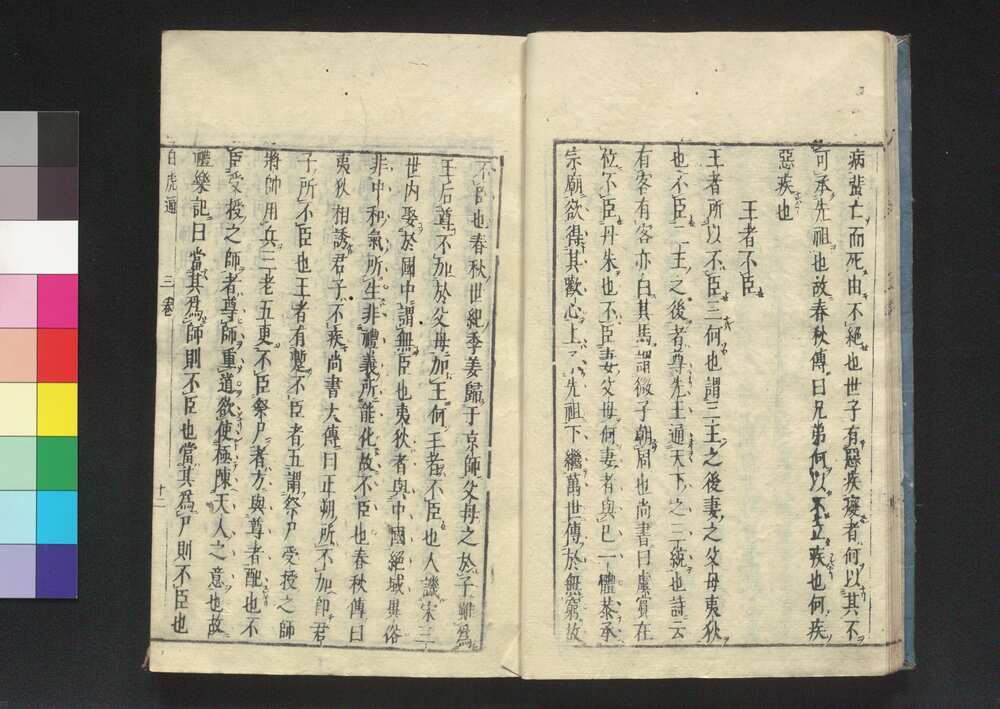 病蠱亡而死由不絕也世子有惡疾癈者何以其不
可承先祖也故春秋傳曰兄弟何以不立疾也何疾
惡疾也
王者不臣
王者所以不臣三何也謂三王之後妻之父母夷狄
也不臣二王之後者尊先王通天下之三統也詩云
有客有客亦白其馬謂微子朝周也尚書曰虞賓在
位不臣丹朱也不臣妻父母何妻者與已一體恭承
宗廟欲得其歡心上先祖下繼萬世傳於無窮故
不臣也春秋世紀季姜歸于京師父母之於子雖爲
王后尊不加於父母加王何王者不臣也人譏宋三
世內娶於國中謂無臣也夷狄者與中國絕域異俗
非中和氣所生非禮義所能化故不臣也春秋傳曰
夷狄相誘君子不疾尚書大傳曰正朔所不加卽君
子所不臣也王者有蹔不臣者五謂祭尸受授之師
將帥用兵三老五更不臣祭尸者方與尊者配也不
臣受授之師者尊師重道欲使極陳天人之意也故
禮樂記曰當其爲師則不臣也當其爲尸則不臣也
白虎通 三卷 十二